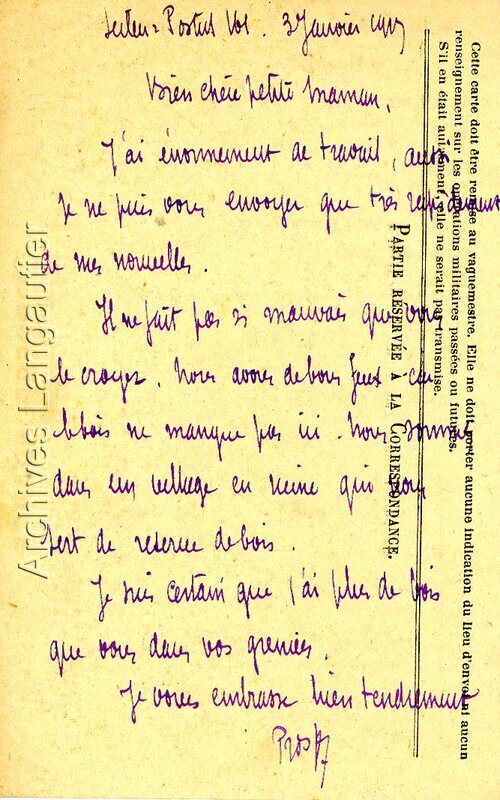 Secteur Postal 101. 3 Janvier 1917
Bien chère petite Maman,
J'ai énormément de travail, aussi
Je ne puis vous envoyer que très rapidement
de mes nouvelles.
Il ne fait pas si mauvais que vous
le croyez. Nous avons de bons feux car
le bois ne manque pas ici. Nous sommes
dans un village en ruine qui nous
sert de réserve de bois.
Je suis certain que j'ai plus de bois
que vous dans vos greniers.
Je vous embrasse bien tendrement
Cette carte doit être remise au vaguemestre. Elle ne doit porter aucune indication du lieu d'envoi ni aucun
renseignement sur les opérations militaires passées ou futures.
S'il en était autrement, elle ne serait pas transmise.
PARTIE RÉSERVÉE À LA CORRESPONDANCE.
Archives Langautier